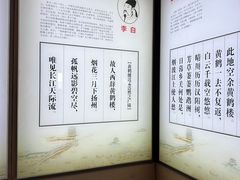 李白
《黄鹤楼送孟浩然之广陵》
故人西辞黄鹤楼,
烟花三月下扬州。
孤帆远影碧空尽,
唯见长江天际流。
此地空余黄鹤楼。
黄鹤一去不复返,
白云千载空悠悠。
晴川历历汉阳树,
芳草萋萋鹦鹉洲。
日暮乡关何处是,
烟波江上使人愁。